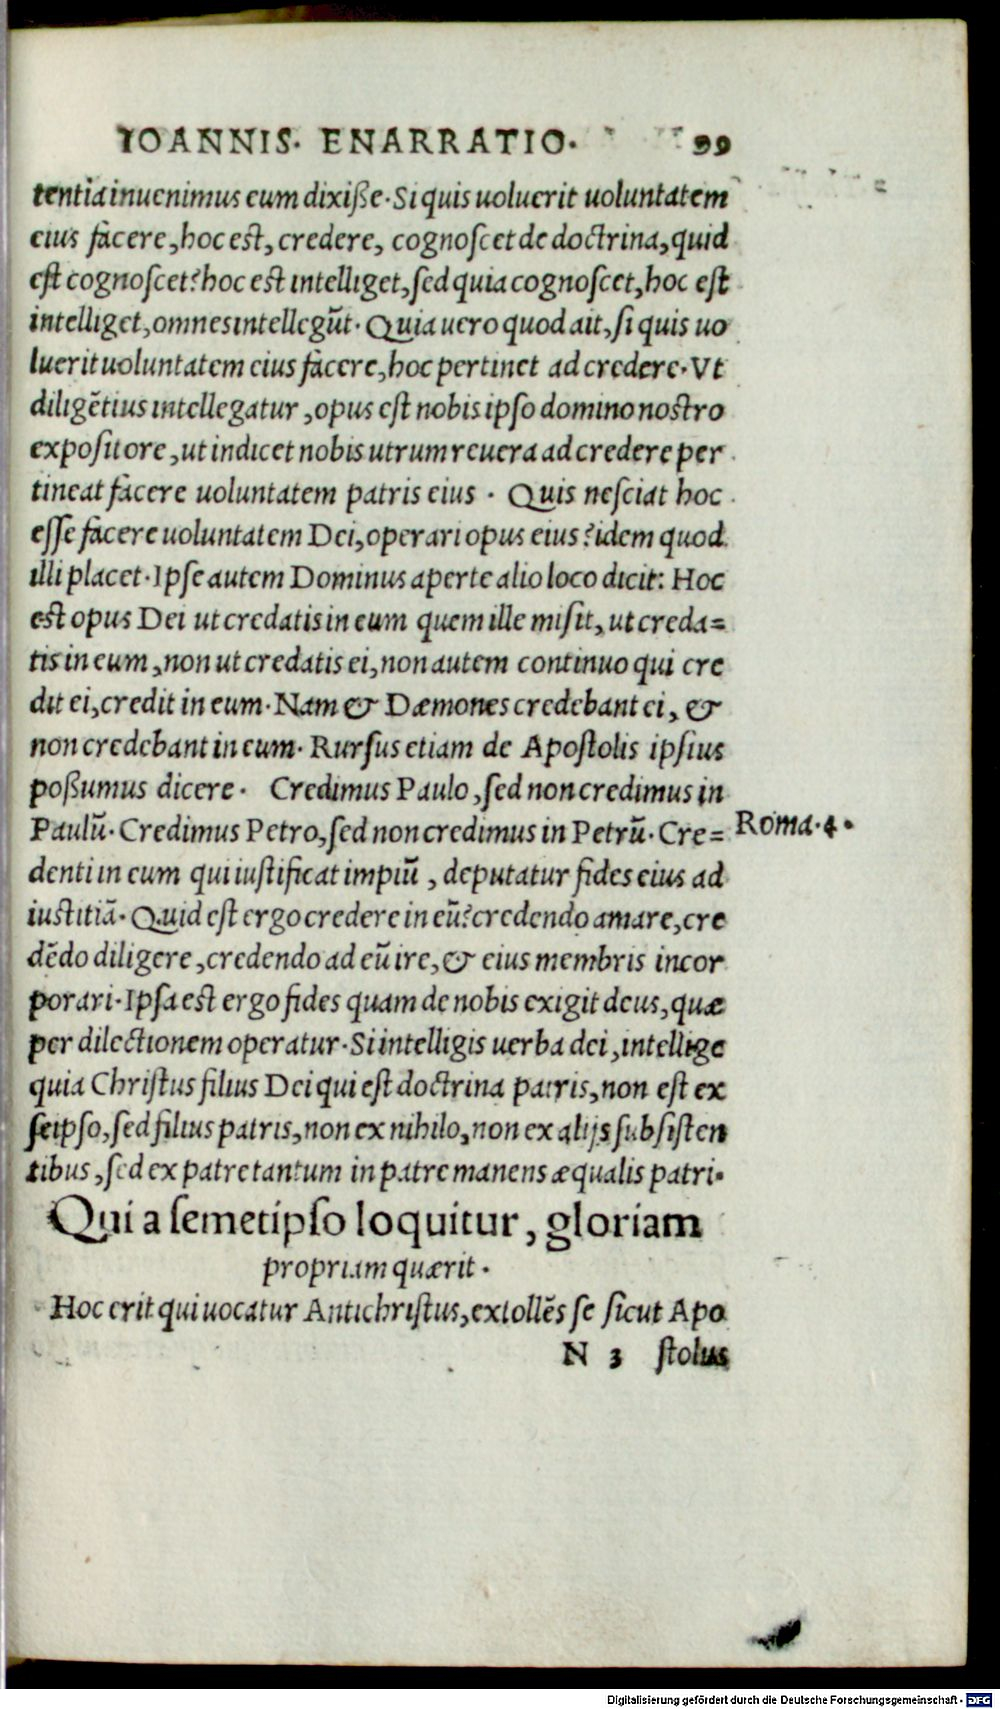 IOANNIS. ENARRATIO. 99
tentia inuenimus eum dixiße. Si quis uoluerit uoluntatem
eius facere, hoc est, credere, cognoscet de doctrina, quid
est cognoscet? hoc est intelliget, sed quia cognoscet, hoc est
intelliget, omnes intellegūt. Quia uero quod ait, si quis uo
luerit uoluntatem eius facere, hoc pertinet ad credere. Vt
diligētius intellegatur, opus est nobis ipso domino nostro
expositore, ut indicet nobis utrum reuera ad credere per
tineat facere uoluntatem patris eius. Quis nesciat hoc
esse facere uoluntatem Dei, operari opus eius? idem quod
illi placet. Ipse autem Dominus aperte alio loco dicit: Hoc
est opus Dei ut credatis in eum quem ille misit, ut creda=
tis in eum, non ut credatis ei, non autem continuo qui cre
dit ei, credit in eum. Nam & Dæmones credebant ei, &
non credebant in eum. Rursus etiam de Apostolis ipsius
poßumus dicere. Credimus Paulo, sed non credimus in
Paulū. Credimus Petro, sed non credimus in Petrū. Cre=
Roma.4.
denti in eum qui iustificat impiū, deputatur fides eius ad
iustitiā. Quid est ergo credere in eū? credendo amare, cre
dēdo diligere, credendo ad eū ire, & eius membris incor
porari. Ipsa est ergo fides quam de nobis exigit deus, quæ
per dilectionem operatur. Si intelligis uerba dei, intellige
quia Christus filius Dei qui est doctrina patris, non est ex
seipso, sed filius patris, non ex nihilo, non ex alijs subsisten
tibus, sed ex patre tantum in patre manens æqualis patri.
Qui a semetipso loquitur, gloriam
propriam quærit.
Hoc erit qui uocatur Antichristus, extollēs se sicut Apo
N 3 stolus
Digitalisierung gefördert durch die Deutsche Forschungsgemeinschaft - DFG